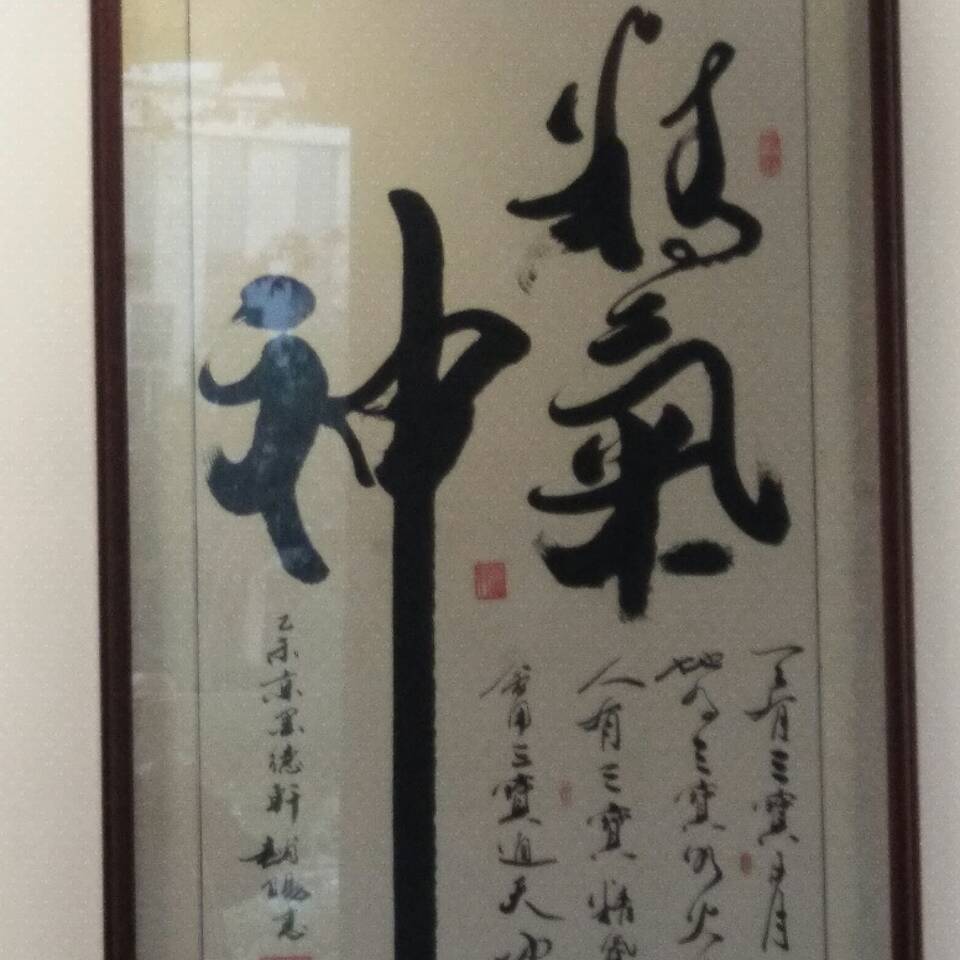 精氣
神
天有三寶日月
地有三寶水火
人有三寶精氣
會用三寶通天
乙未 墨德軒